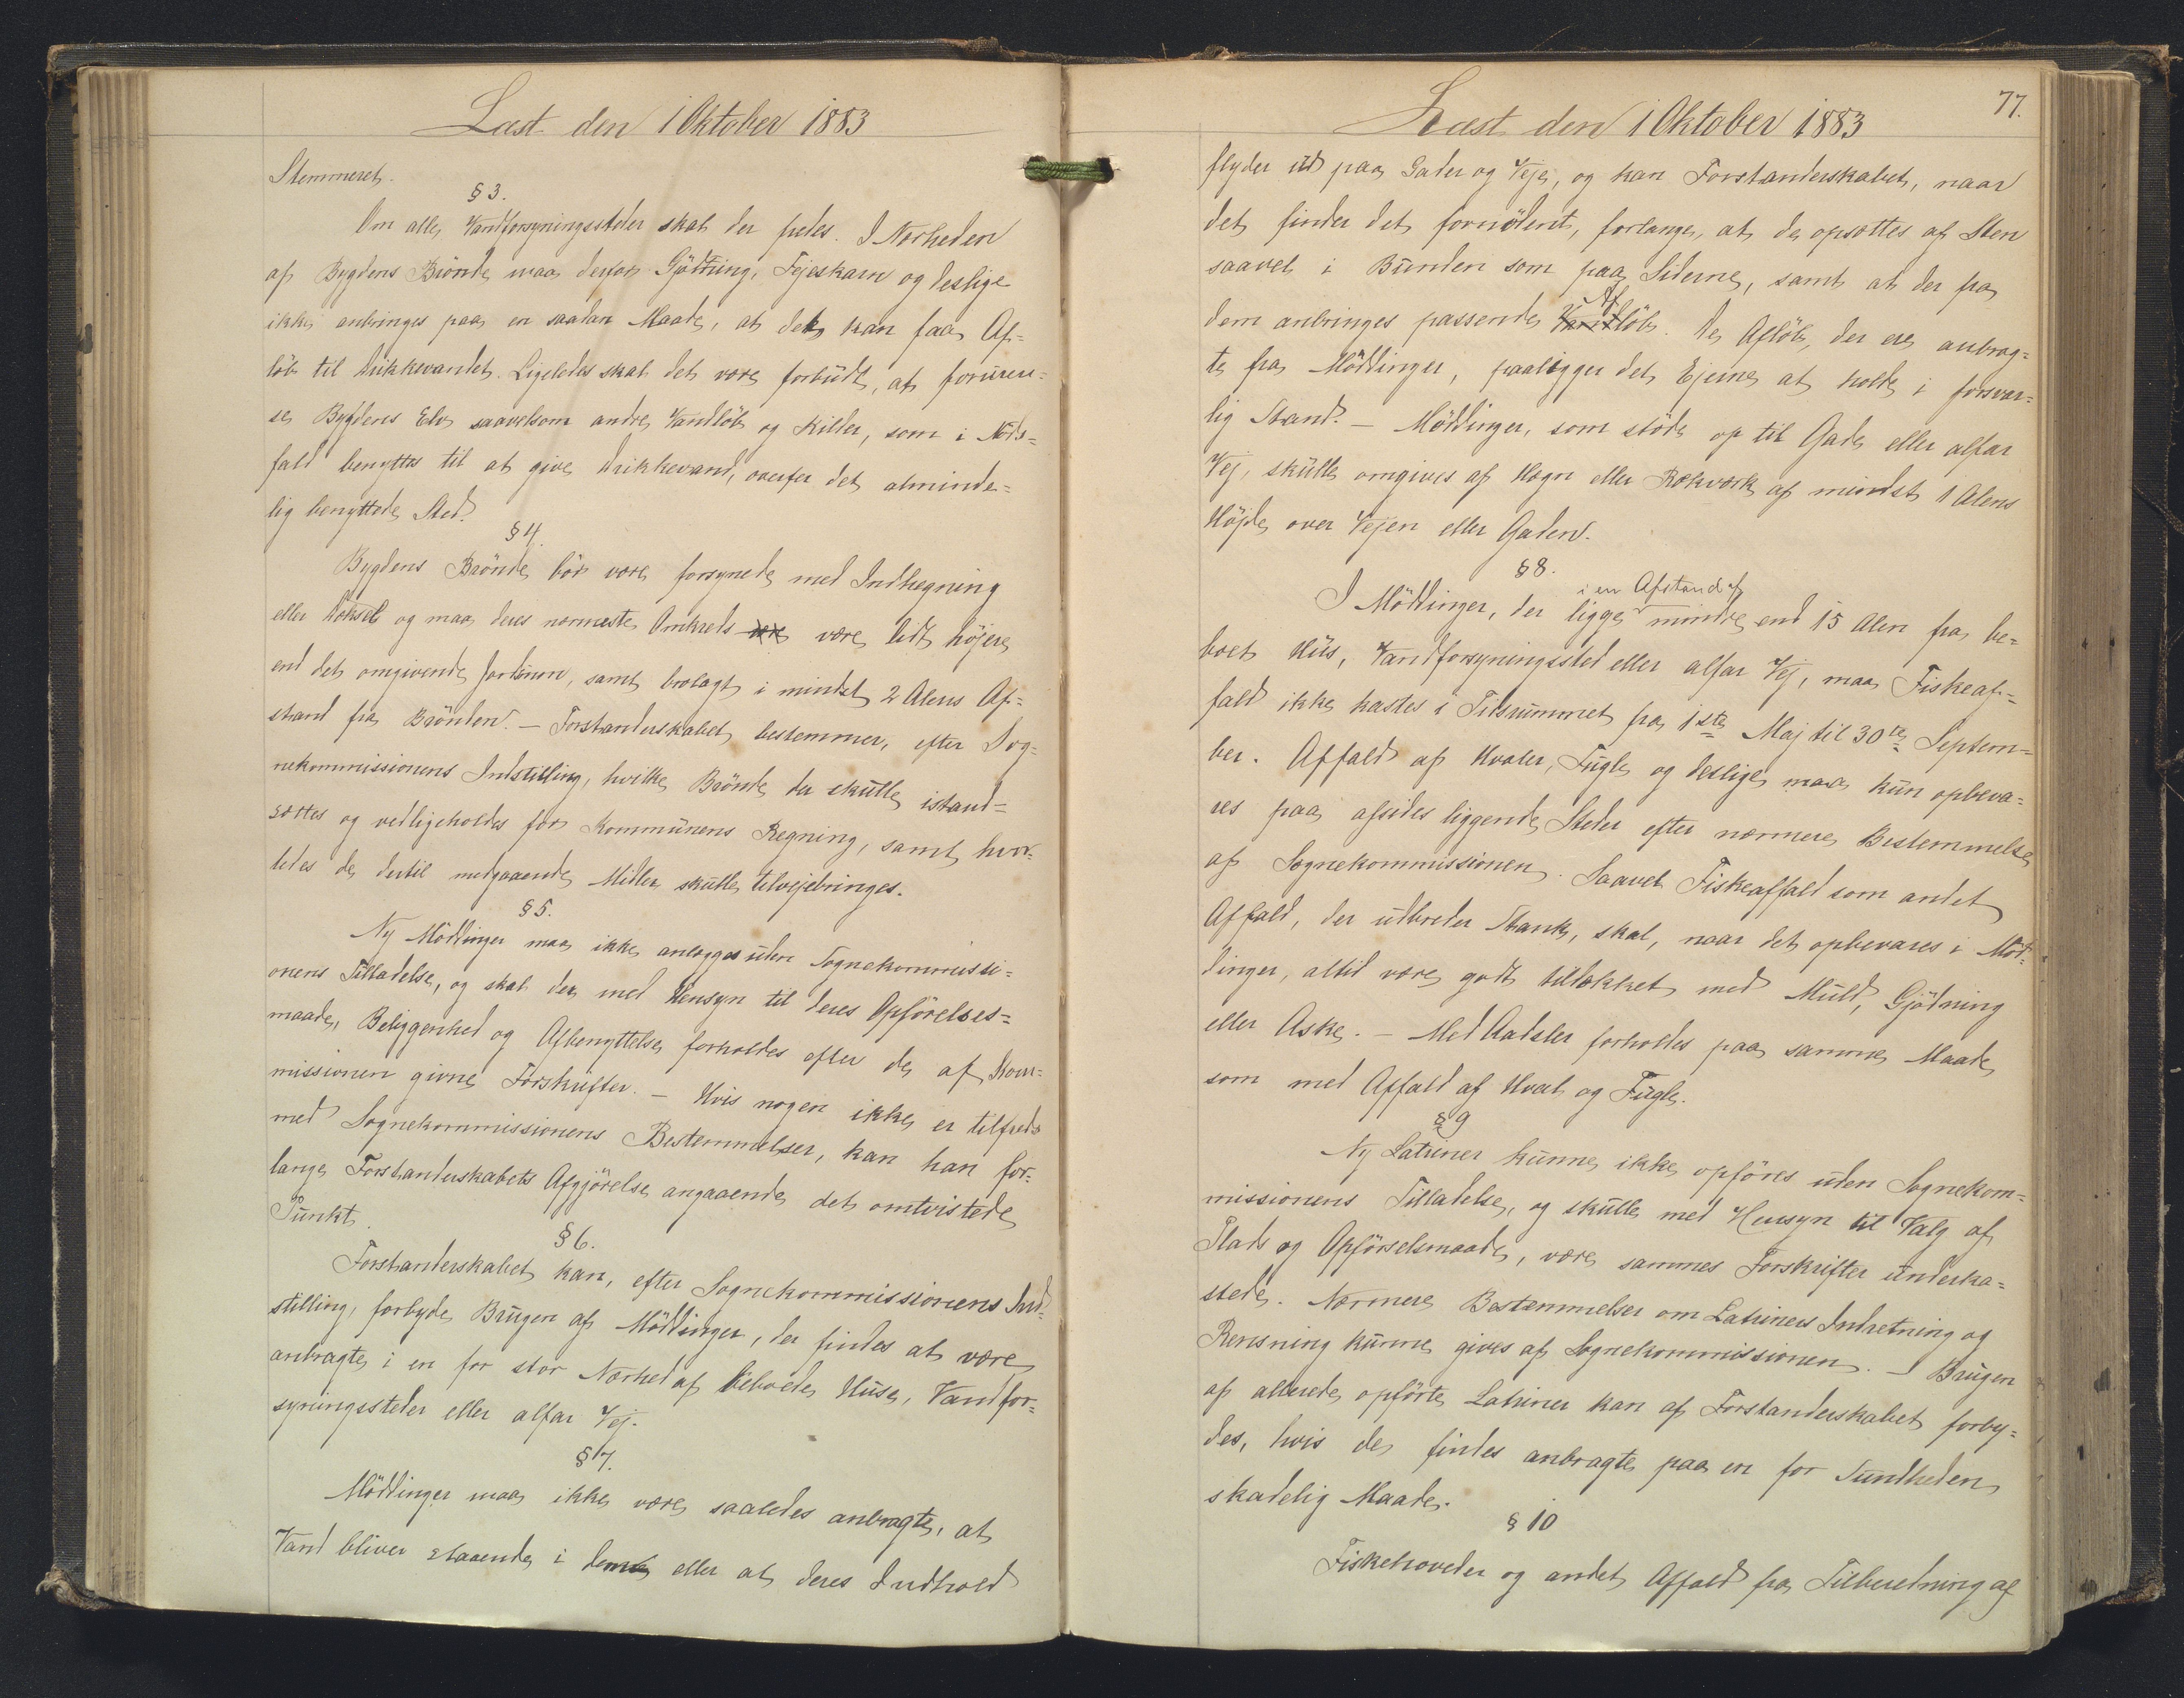 Læst den 1 Oktober 1883
Stemmeret.
§ 3.
Om alle Vandforsyningssteder skal der fredes. I Nærheden
af Bygdens Brönde maa derfor Gjödning, Fejeskarn og deslige
ikke anbringes paa en saadan Maade, at det kan faa Af=
löb til Drikkevandet. Ligeledes skal det være forbudt, at foruren=
se Bygdens Elv saavelsom andre Vandlöb og Kilder, som i Nöds=
fald benyttes til at give Drikkevand, ovenfor det alminde=
lig benyttede Sted.
§ 4.
Bygdens Brönde bör være forsynede med Indhegning
eller Dæksel og maa deres nærmeste Omkreds være lidt höjere
end det omgivende Jordsmon, samt brolagt i mindst 2 Alens Af=
stand fra Brönden. – Forstanderskabet bestemmer, efter Sog=
nekommissionens Indstilling, hvilke Brönde der skulle istand=
sættes og vedligeholdes for Kommunens Regning, samt hvor=
ledes de dertil medgaaende Midler skulle tilvejebringes.
§ 5.
Ny Möddinger maa ikke anlægges uden Sognekommissi=
onens Tilladelse, og skal der med Hensyn til deres Opförelses=
maade, Beliggenhed og Afbenyttelse forholdes efter de af Kom=
missionen givne Forskrifter. – Hvis nogen ikke er tilfreds
med Sognekommissionens Bestemmelser, kan han for=
lange Forstanderskabets Afgjörelse angaaende det omtvistede
Punkt.
§ 6.
Forstanderskabet kan, efter Sognekommissionens Ind=
stilling, forbyde Brugen af Möddinger, der findes at være
anbragte i en for stor Nærhed af beboede Huse, Vandfor=
syningssteder eller alfar Vej.
§ 7.
Möddinger maa ikke være saaledes anbragte, at
Vand bliver staaende i dem eller at deres Indhold
77.
Læst den 1 Oktober 1883
flyder ud paa Gader og Veje, og kan Forstanderskabet, naar
det finder det fornödent, forlange, at de opsættes af Sten
saavel i Bunden som paa Siderne, samt at der fra
dem anbringes passende Vandlöb. De Aflöb, der ere anbrag=
Af
te fra Möddinger, paaligger det Ejerne at holde i forsvar=
lig Stand. – Möddinger, som stöde op til Gade eller alfar
Vej, skulle omgives af Hegn eller Rækværk af mindst 1 Alens
Höjde over Vejen eller Gaden.
§ 8.
i en Afstand af
I Möddinger, der ligge mindre end 15 Alen fra be=
boet Hus, Vandforsyningssted eller alfar Vej, maa Fiskeaf=
fald ikke kastes i Tidsrummet fra 1ste Maj til 30te Septem=
ber. Affald af Hvaler, Fugle og deslige maa kun opbeva=
res paa afsides liggende Steder efter nærmere Bestemmelse
af Sognekommissionen. Saavel Fiskeaffald som andet
Affald, der udbreder Stank, skal, naar det opbevares i Möd=
dinger, altid være godt tildækket med Muld, Gjödning
eller Aske. – Med Aadsler forholdes paa samme Maade
som med Affald af Hval og Fugle.
§ 9
Ny Latriner kunne ikke opföres uden Sognekom=
missionens Tilladelse, og skulle med Hensyn til Valg af
Plads og Opförselsmaade, være sammes Forskrifter underka=
stede. Nærmere Bestemmelser om Latriners Indretning og
Rensning kunne gives af Sognekommissionen. – Brugen
af allerede opförte Latriner kan af Forstanderskabet forby=
des, hvis de findes anbragte paa en for Sundheden
skadelig Maade.
§ 10
Fiskehoveder og andet Affald fra Tilberedning af